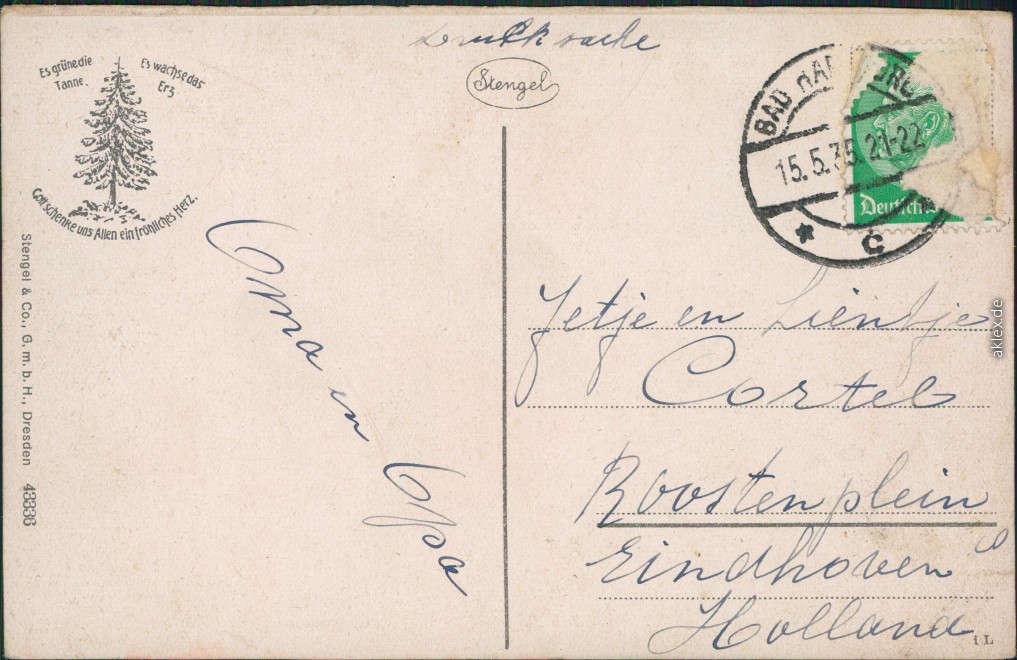 Drucksache
Es grüne die
Tanne.
Es wachse das
Erz
Gott schenke uns Allen ein fröhliches Herz.
Stengel
BAD HA
URG
15.5.35.21-22
* c *
Deutsches
Stengel & Co., G. m. b. H., Dresden 43336
Oma en Opa
Jetje en Lientje
Cortel
Roostenplein
Eindhoven
Holland
1L
aklex.de